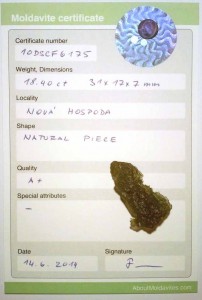 Moldavite certificate
Certificate number
10DSCF6175
Weight, Dimensions
18.40 ct 31x17x7 mm
Locality
NOVÁ HOSPODA
Shape
NATURAL PIECE
Quality
A+
Special attributes
–
Date
Signature
14. 6. 2019
AboutMoldavites.com